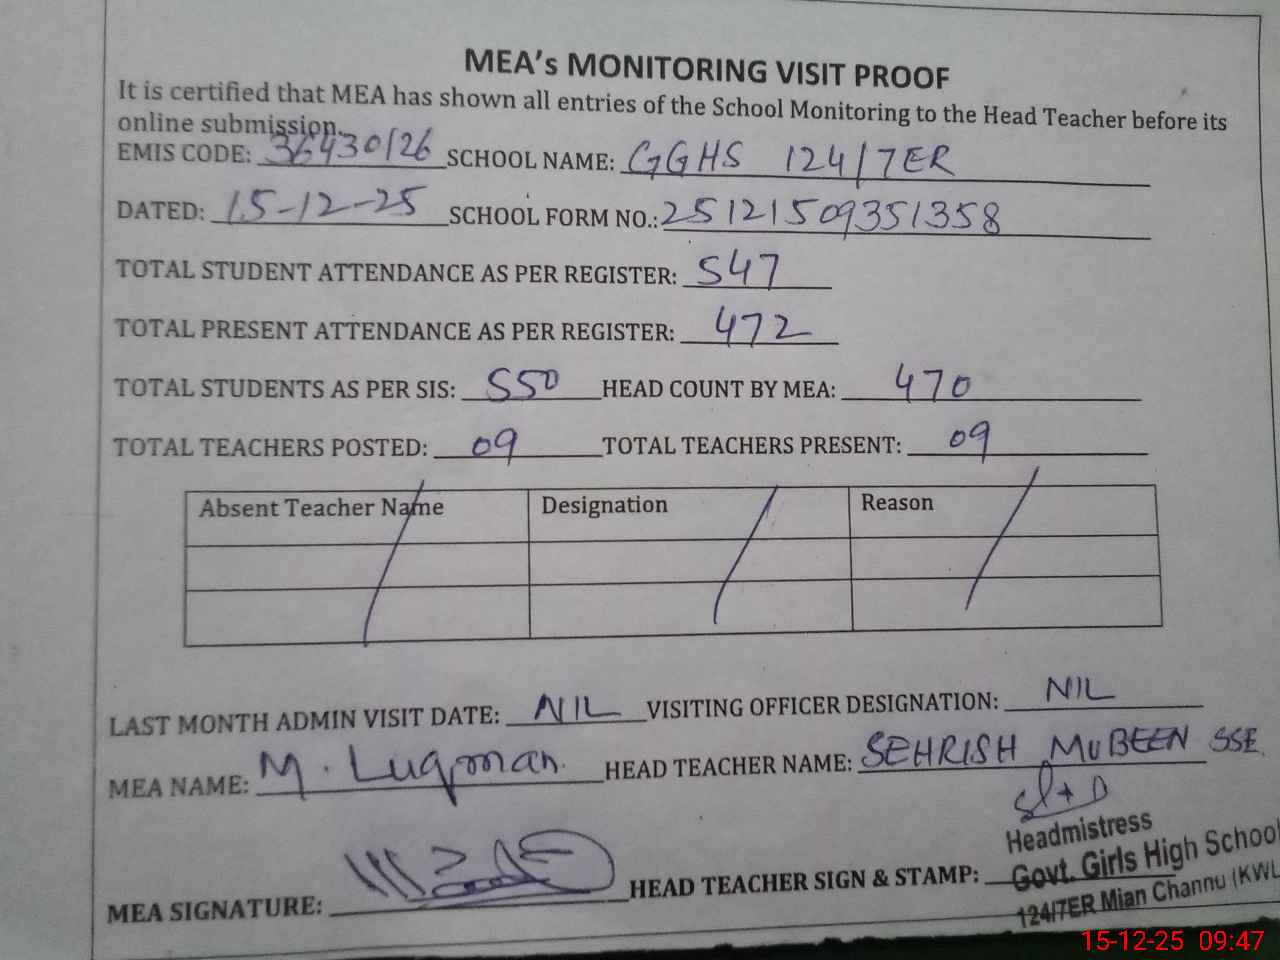 MEA's MONITORING VISIT PROOF
It is certified that MEA has shown all entries of the School Monitoring to the Head Teacher before its
online submission.
EMIS CODE: 36430126 SCHOOL NAME: GGHS 124/7ER
DATED: 15-12-25 SCHOOL FORM NO.: 25121509351358
TOTAL STUDENT ATTENDANCE AS PER REGISTER: 547
TOTAL PRESENT ATTENDANCE AS PER REGISTER: 472
TOTAL STUDENTS AS PER SIS: 550 HEAD COUNT BY MEA: 470
TOTAL TEACHERS POSTED: 09 TOTAL TEACHERS PRESENT: 09
Absent Teacher Name Designation Reason
LAST MONTH ADMIN VISIT DATE: NIL VISITING OFFICER DESIGNATION: NIL
MEA NAME: M. Luqman. HEAD TEACHER NAME: SEHRISH MUBEEN SSE
Headmistress
MEA SIGNATURE: HEAD TEACHER SIGN & STAMP: Govt. Girls High School
124/7ER Mian Channu (KWL
15-12-25 09:47